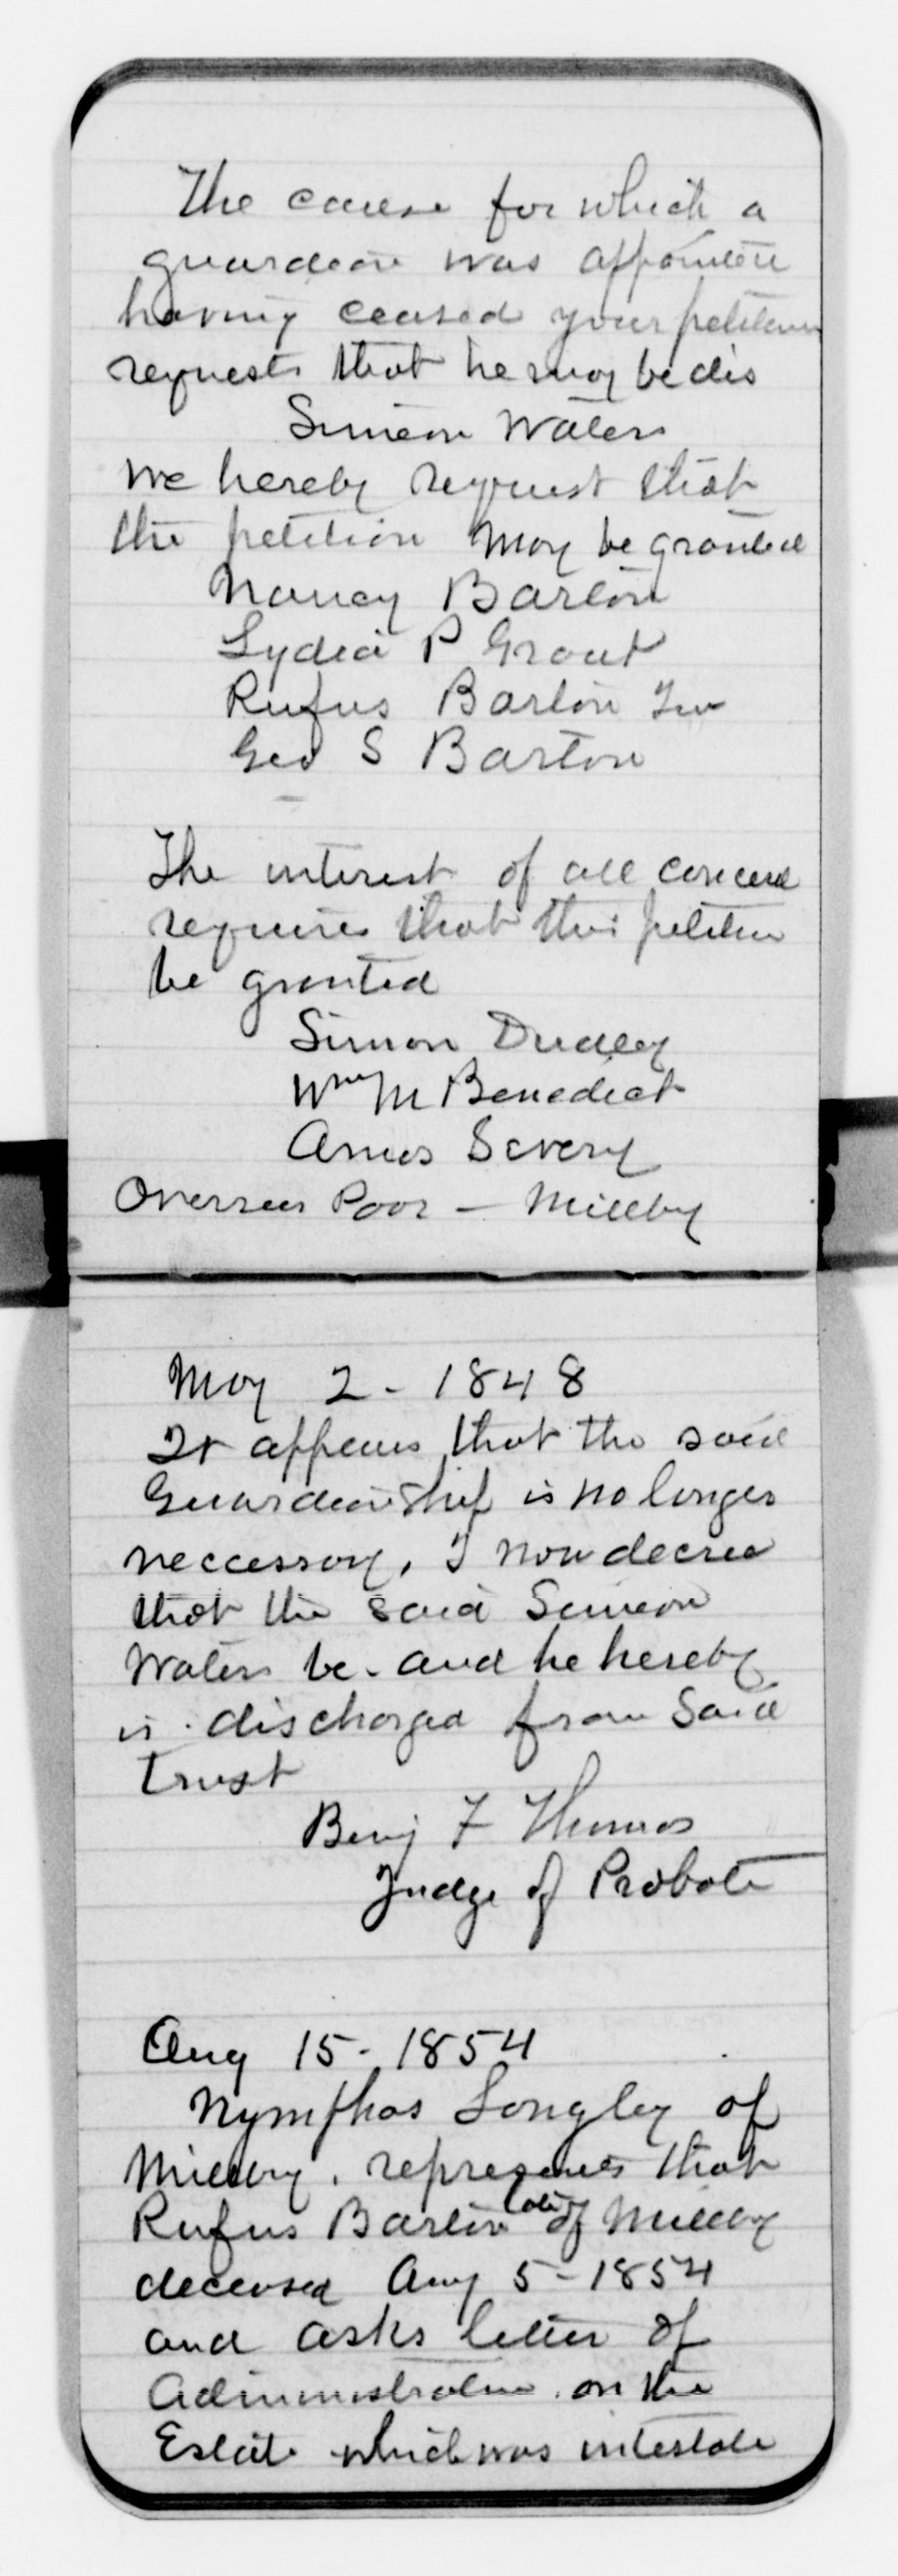 The cause for which a
guardian was appointed
having ceased your petitioner
requests that he may be dis
Simeon Waters
We hereby request that
the petition may be granted
Nancy Barton
Lydia P Grout
Rufus Barton Jun
Geo S Barton
The interest of all concerned
requires that this petition
be granted
Simon Dudley
Wm M Benedict
Amos Severy
Overseers Poor – Millby
May 2 - 1848
It appears that the said
Guardianship is no longer
neccessary, I now decree
that the said Simeon
Waters be and he hereby
is discharged from said
trust
Benj F Thomas
Judge of Probate
Aug 15 - 1854
Nymphas Longley of
Millbry, represents that
Rufus Barton late of Millby
deceased Aug 5 - 1854
and asks letter of
Administration on the
Estate which was intestate